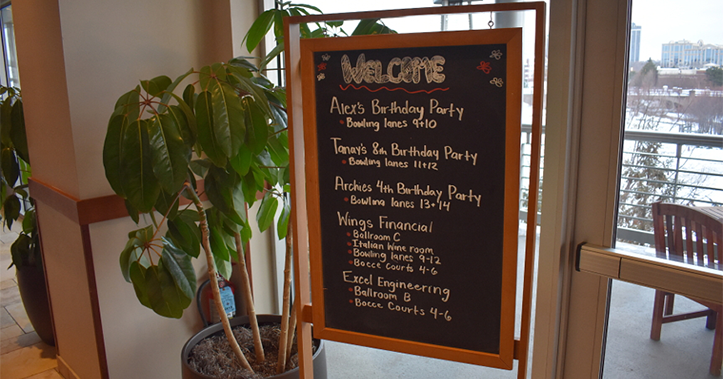 WELCOME
Alex's Birthday Party
Bowling lanes 9+10
Tanay's 8th Birthday Party
Bowling lanes 11+12
Archies 4th Birthday Party
Bowling lanes 13+14
Wings Financial
Ballroom C
Italian Wine room
Bowling lanes 9-12
Bocce Courts 4-6
Excel Engineering
Ballroom B
Bocce Courts 4-6